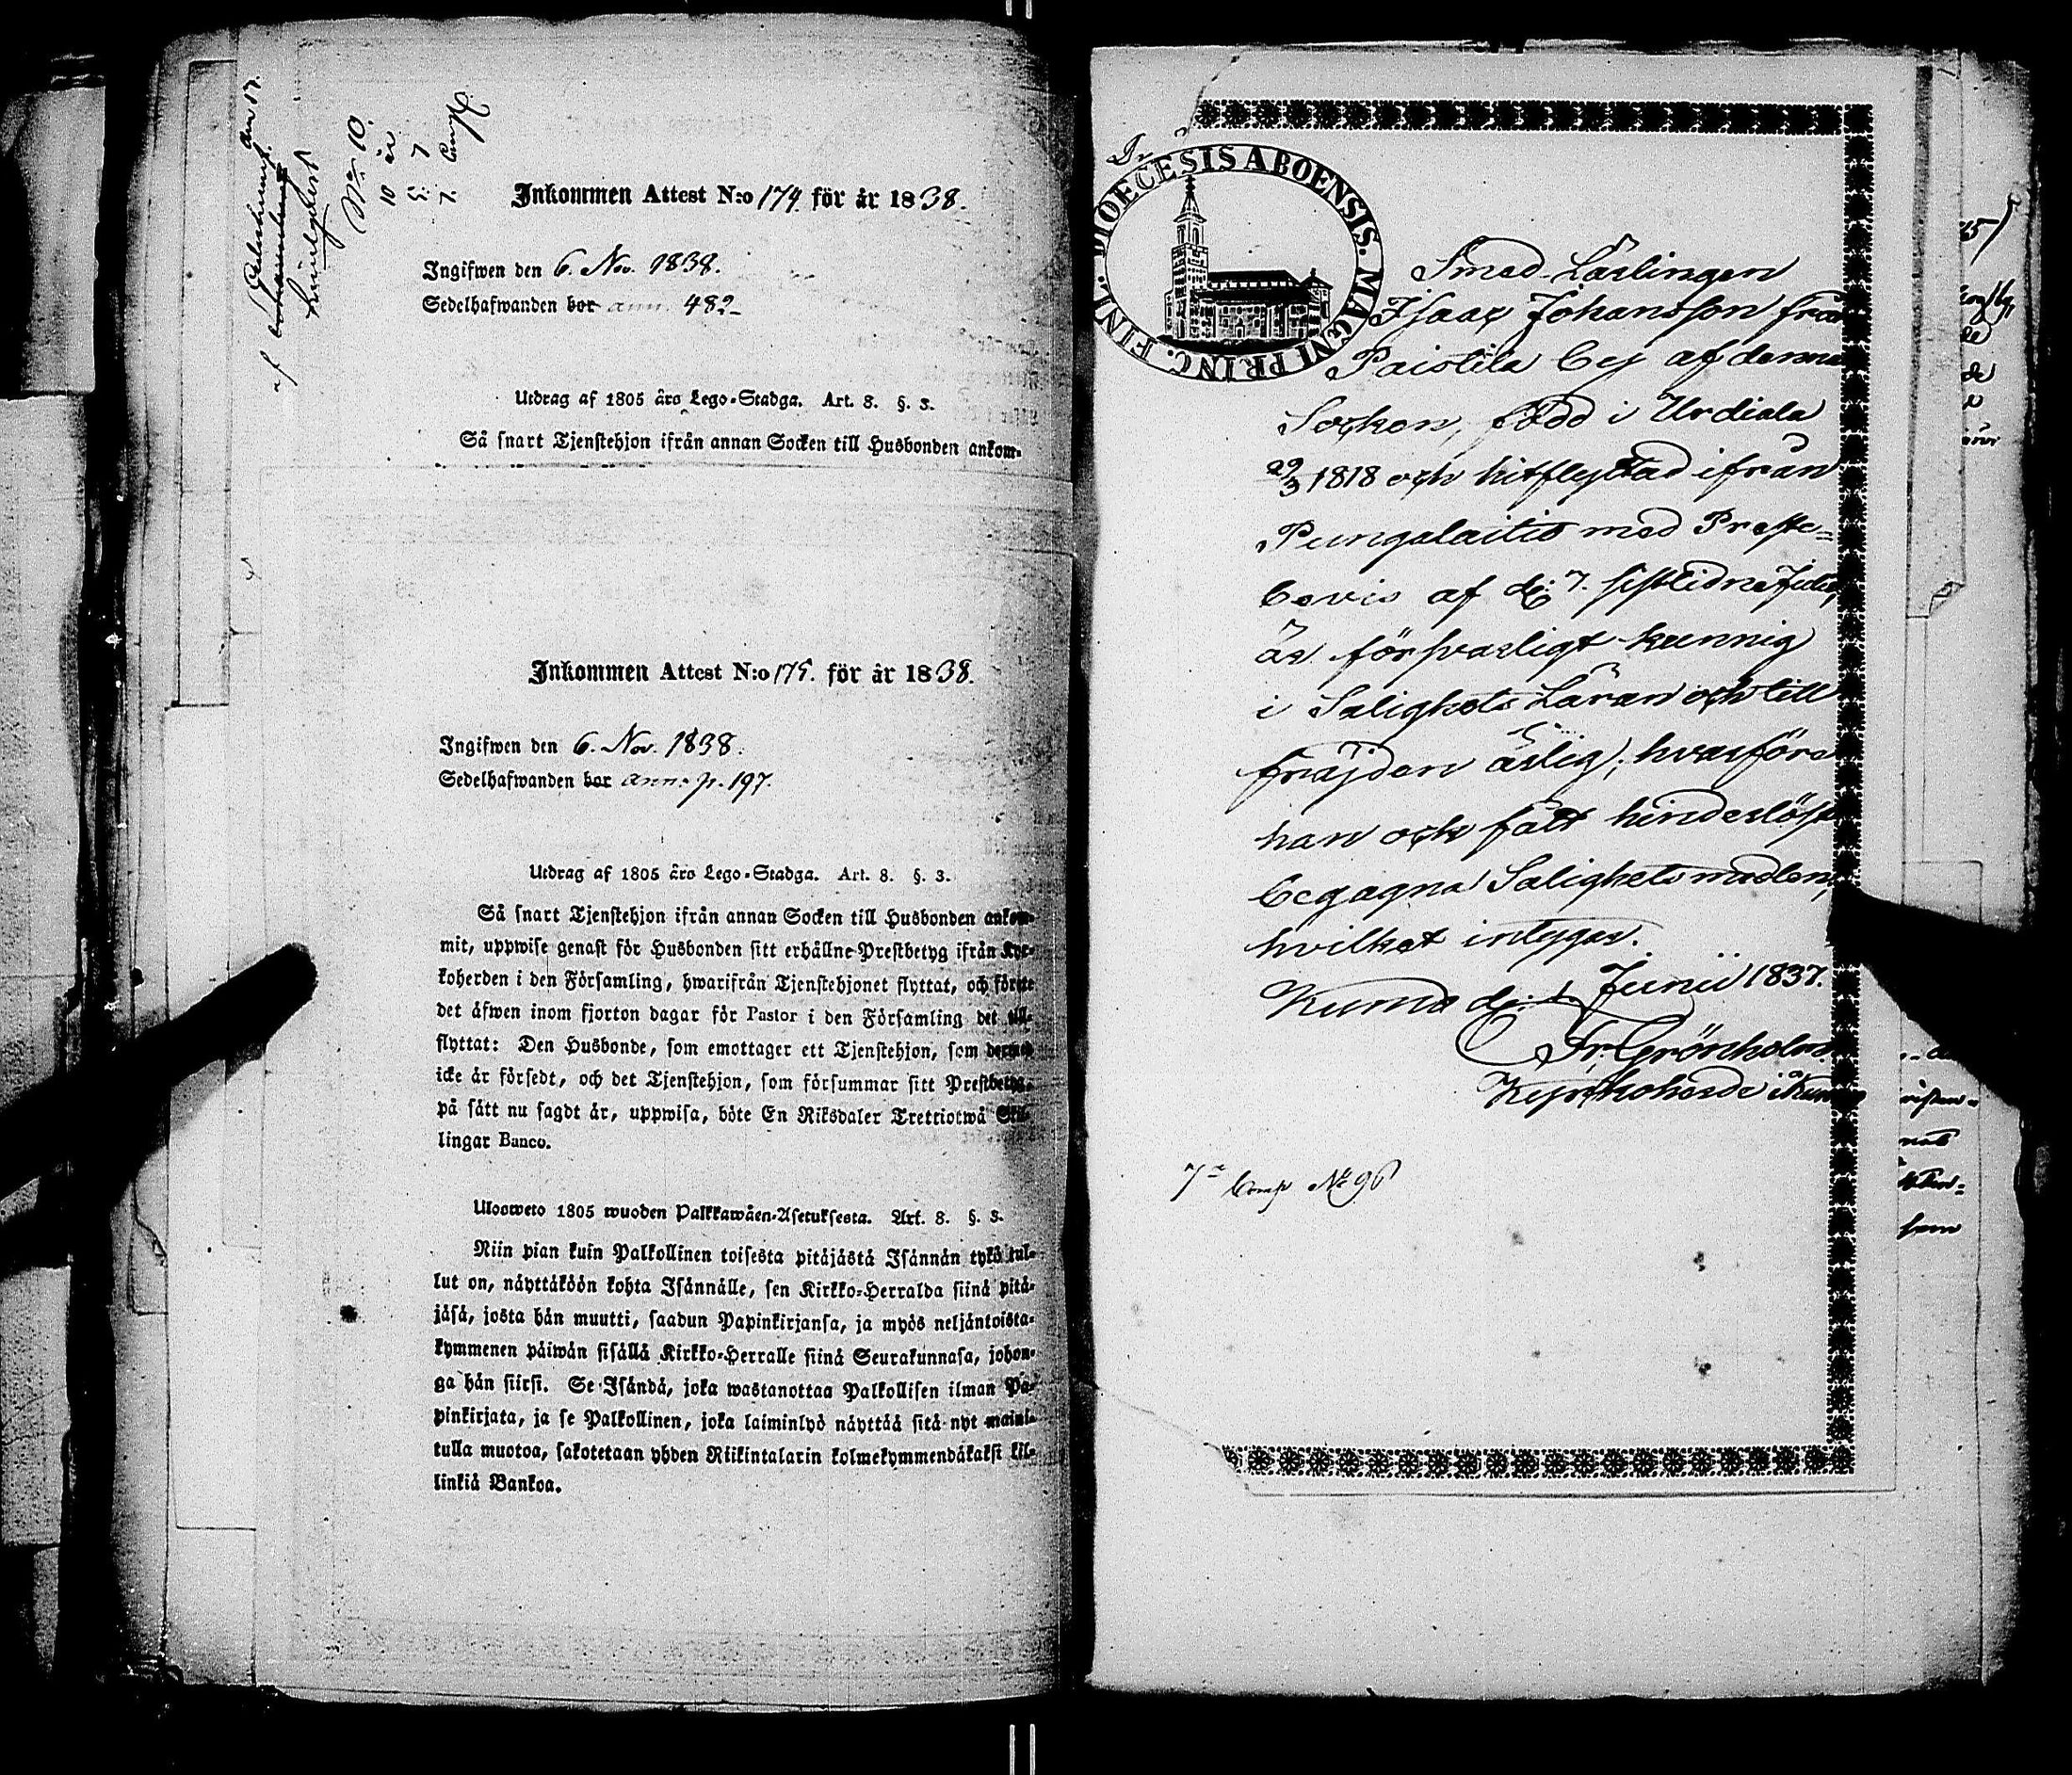 Inkommen Attest N:o 174. för år 1838.
Ingifwen den 6. Nov. 1838.
Sedelhafwanden bor ann. 482
Utdrag af 1805 års Lego-Stadga. Art. 8. §. 3.
Så snart Tjenstehjon ifrån annan Socken till Husbonden ankom-
N:o 10.
10 år
7. Comp.
Inkommen Attest N:o 175. för år 1838.
Ingifwen den 6. Nov. 1838.
Sedelhafwanden bor ann. p. 197.
Utdrag af 1805 års Lego-Stadga. Art. 8. §. 3.
Så snart Tjenstehjon ifrån annan Socken till Husbonden ankom-
mit, uppwise genast för Husbonden sitt erhållne Prestbetyg ifrån Kyr-
koherden i den Församling, hwarifrån Tjenstehjonet flyttat, och förete
det äfwen inom fjorton dagar för Pastor i den Församling det till-
flyttat: Den Husbonde, som emottager ett Tjenstehjon, som dermed
icke är försedt, och det Tjenstehjon, som försummar sitt Prestbetyg,
på sätt nu sagdt är, uppwisa, böte En Riksdaler Trettiotwå Skil-
lingar Banco.
Ulosweto 1805 wuoden Palkkawäen-Asetuksesta. Art. 8. §. 3.
Niin pian kuin Palkollinen toisesta pitäjästä Isännän tykö tul-
lut on, näyttäköön kohta Isännälle, sen Kirkko-Herralda siinä pitä-
jäsä, josta hän muutti, saadun Papinkirjansa, ja myös neljäntoista-
kymmenen päiwän sisällä Kirkko-Herralle siinä Seurakunnasa, johon-
ga hän siirsi. Se Isändä, joka wastanottaa Palkollisen ilman Pa-
pinkirjata, ja se Palkollinen, joka laiminlyö näyttää sitä nyt maini-
tulla muotoa, sakotetaan yhden Riikintalarin kolmekymmendäkaksi kil-
linkiä Bankoa.
DIOECESIS ABOENSIS. MAGNI PRINC. FINL.
Smed Lärlingen
Isaac Johansson från
Paistila by af denna
Socken, född i Urdiala
29/3 1818 och hitflyttad ifrån
Pungalaitio med Preste-
bevis af d: 7. sistlidne Julii,
är försvarligt kunnig
i Salighets Läran och till
frajden ärlig; hvarföre
han ock fått hinderlöst
begagna Salighets medlen,
hvilket intygas.
Kumo d: 1 Junii 1837.
Fr. Grönholm
Kyrkoherde i Kumo
7de Comp No 96